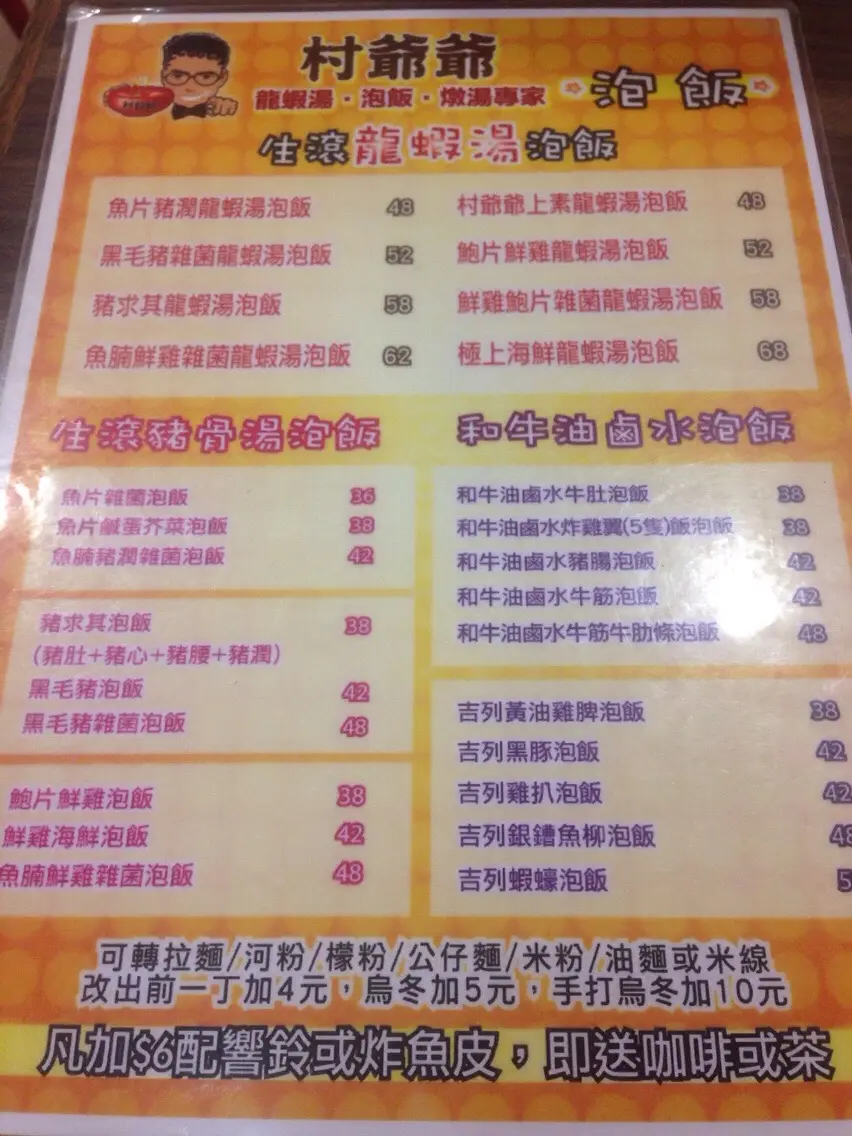 村爺爺
龍蝦湯・泡飯・燉湯專家
泡飯
生滾龍蝦湯泡飯
魚片豬潤龍蝦湯泡飯 48
黑毛豬雜菌龍蝦湯泡飯 52
豬求其龍蝦湯泡飯 58
魚腩鮮雞雜菌龍蝦湯泡飯 62
村爺爺上素龍蝦湯泡飯 48
鮑片鮮雞龍蝦湯泡飯 52
鮮雞鮑片雜菌龍蝦湯泡飯 58
極上海鮮龍蝦湯泡飯 68
生滾豬骨湯泡飯
魚片雜菌泡飯 36
魚片鹹蛋芥菜泡飯 38
魚腩豬潤雜菌泡飯 42
豬求其泡飯 38
(豬肚+豬心+豬腰+豬潤)
黑毛豬泡飯 42
黑毛豬雜菌泡飯 48
鮑片鮮雞泡飯 38
鮮雞海鮮泡飯 42
魚腩鮮雞雜菌泡飯 48
和牛油鹵水泡飯
和牛油鹵水牛肚泡飯 38
和牛油鹵水炸雞翼(5隻)飯泡飯 38
和牛油鹵水豬腸泡飯 42
和牛油鹵水牛筋泡飯 42
和牛油鹵水牛筋牛肋條泡飯 48
吉列黃油雞脾泡飯 38
吉列黑豚泡飯 42
吉列雞扒泡飯 42
吉列銀鱈魚柳泡飯 48
吉列蝦蠔泡飯 5
可轉拉麵/河粉/檬粉/公仔麵/米粉/油麵或米線
改出前一丁加4元，烏冬加5元，手打烏冬加10元
凡加$6配響鈴或炸魚皮，即送咖啡或茶